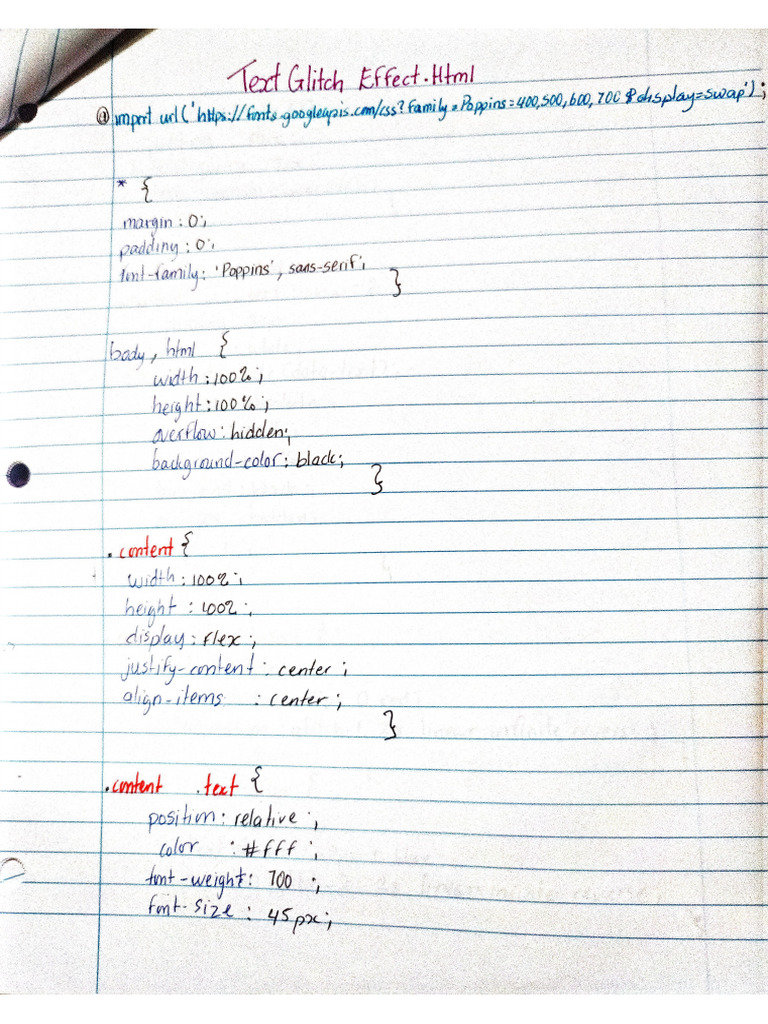 Text Glitch Effect.Html
@import url('https://fonts.googleapis.com/css?family=Poppins=400,500,600,700&display=swap');
* {
margin: 0;
padding: 0;
font-family: 'Poppins', sans-serif;
}
body, html {
width: 100%;
height: 100%;
overflow: hidden;
background-color: black;
}
.content {
width: 100%;
height : 100%;
display: flex;
justify-content : center;
align-items : center;
}
.content .text {
position: relative;
color : #fff;
font-weight: 700;
font-size : 45px;